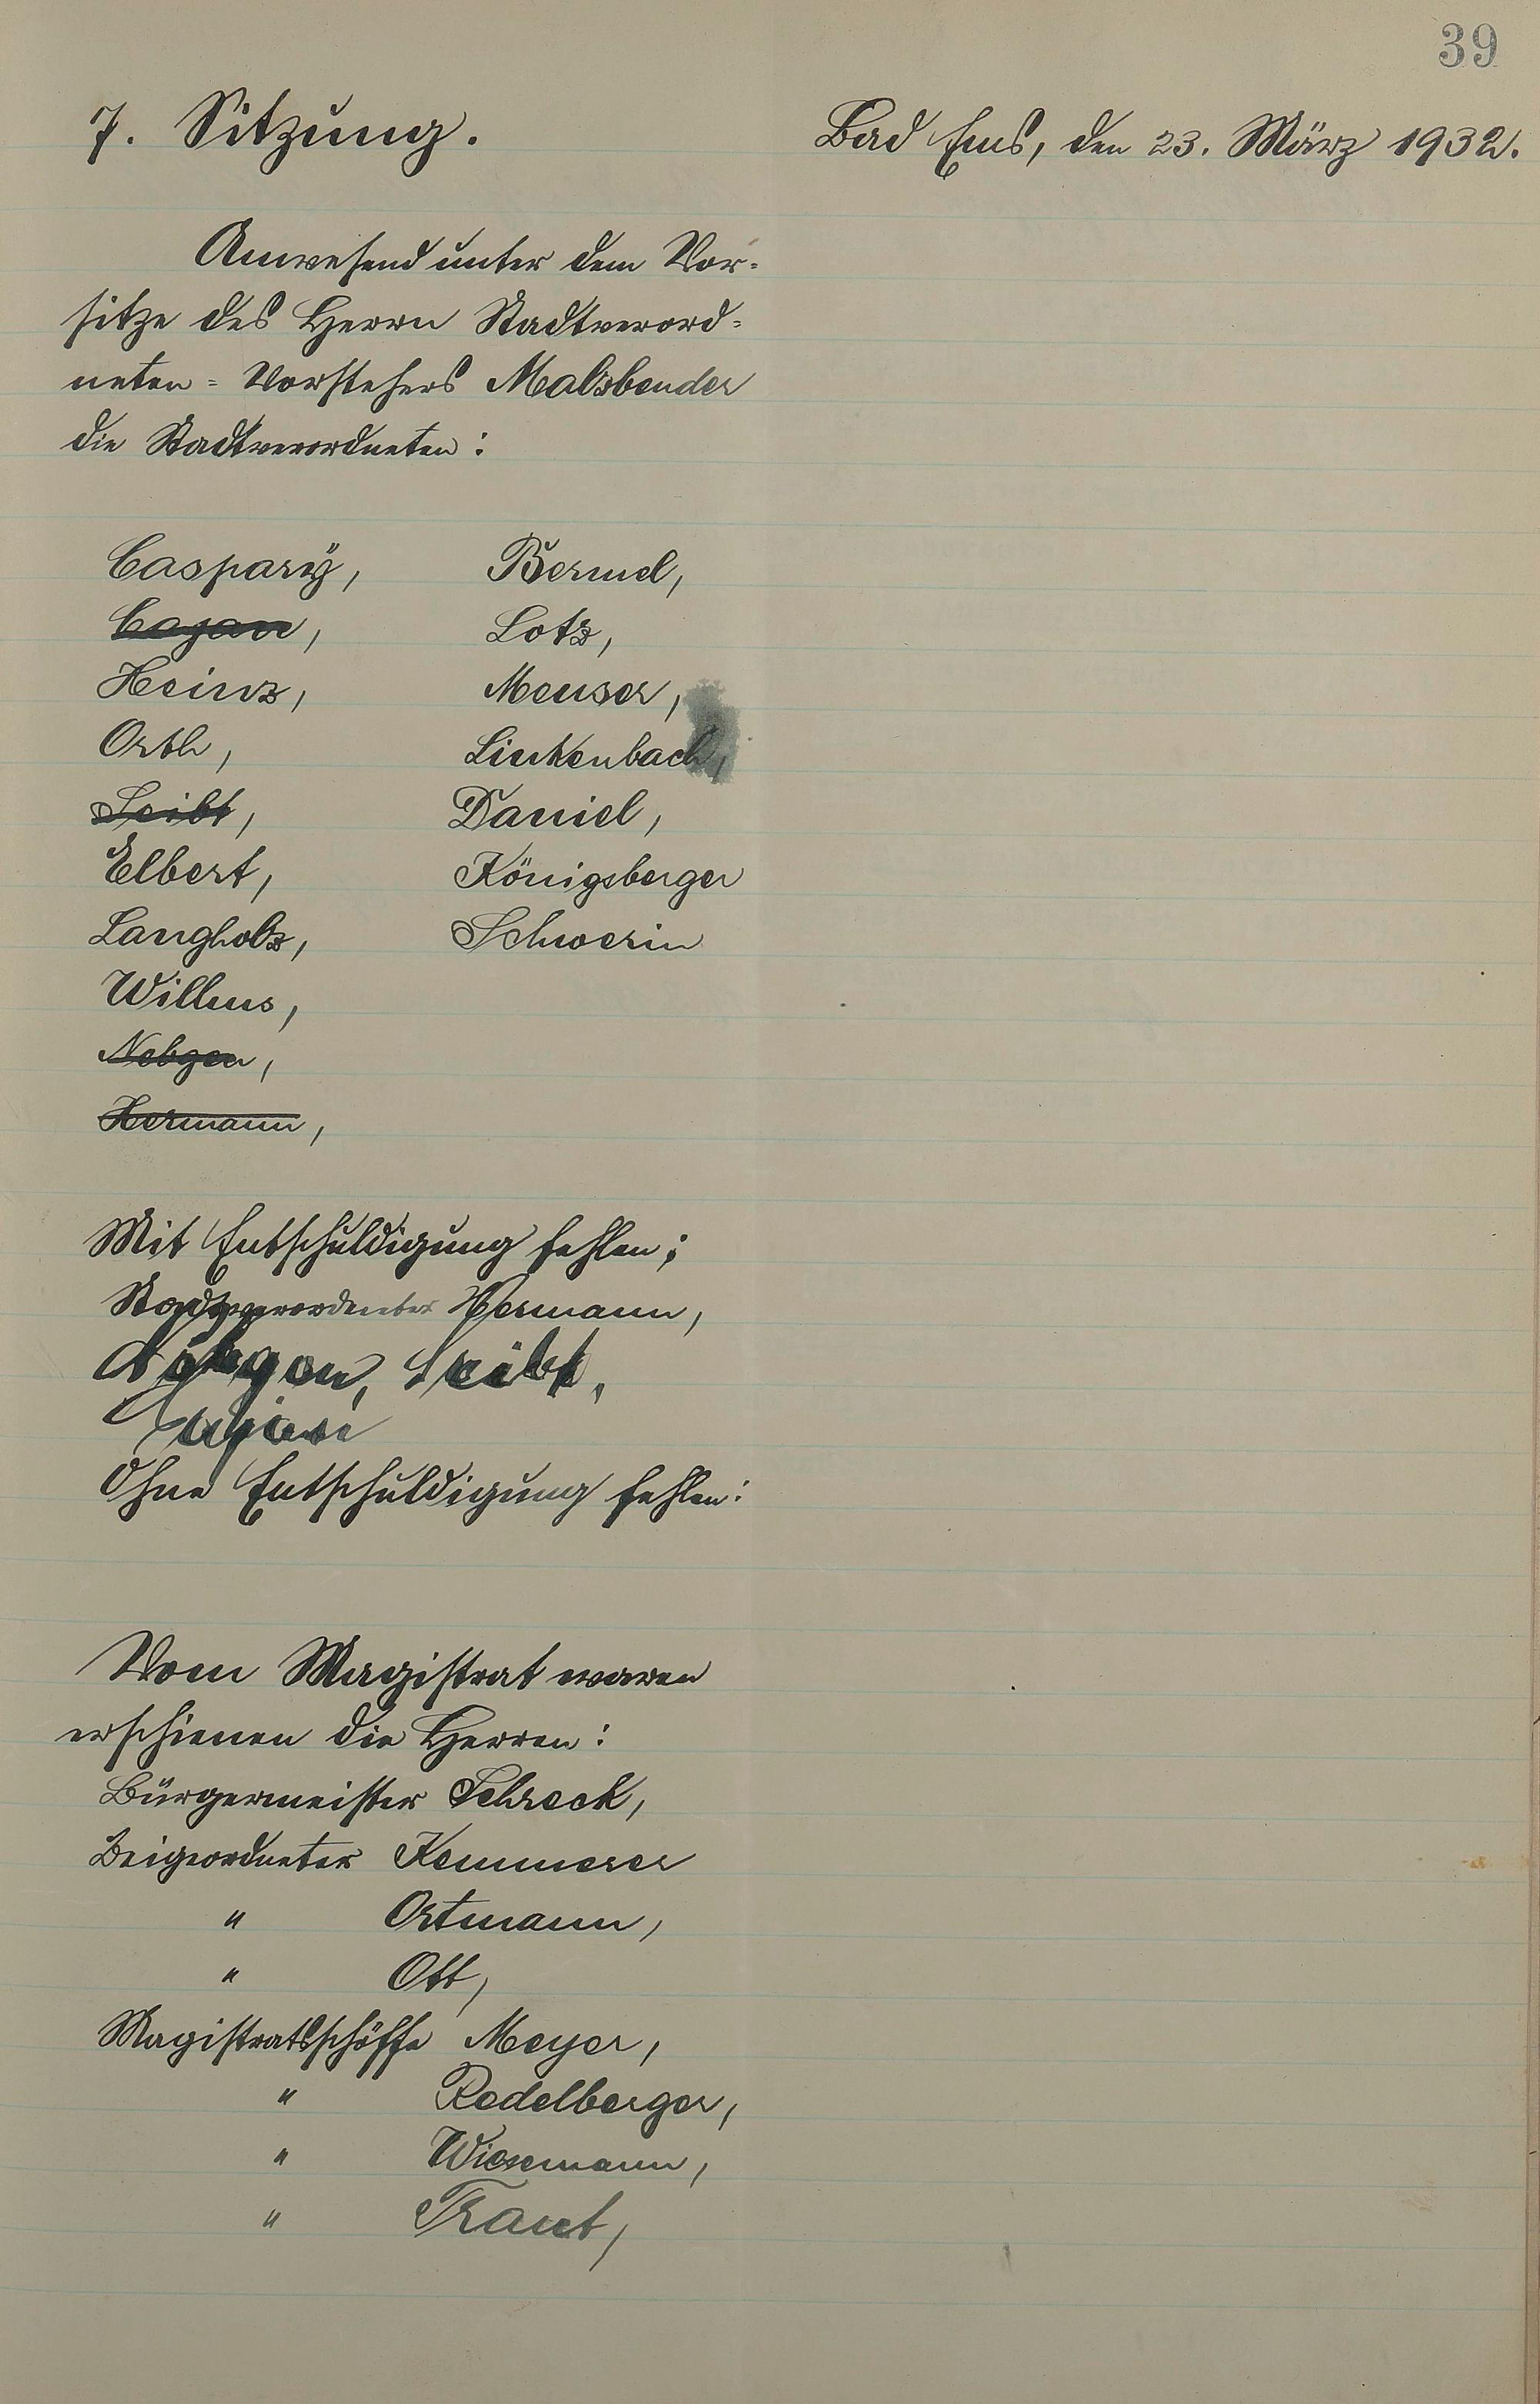 39
7. Sitzung.
Bad Ems, den 23. März 1932.
Anwesend unter dem Vor-
sitze des Herrn Stadtverord-
neten-Vorstehers Malzbender
die Stadtverordneten:
Caspary, Bermel,
Cajan, Lotz,
Heinz, Meuser,
Orth, Linkenbach,
Seibt, Daniel,
Elbert, Königsberger
Langholz, Schwerin
Willms,
Nebgen,
Hermann,
Mit Entschuldigung fehlen:
Stadtverordneter Hermann,
Nebgen, Seibt,
Ohne Entschuldigung fehlen:
Vom Magistrat waren
erschienen die Herren:
Bürgermeister Schreck,
Beigeordneter Kemmerer
" Ortmann,
" Ott,
Magistratsschöffe Meyer,
" Redelberger,
" Wiesemann,
" Traut,